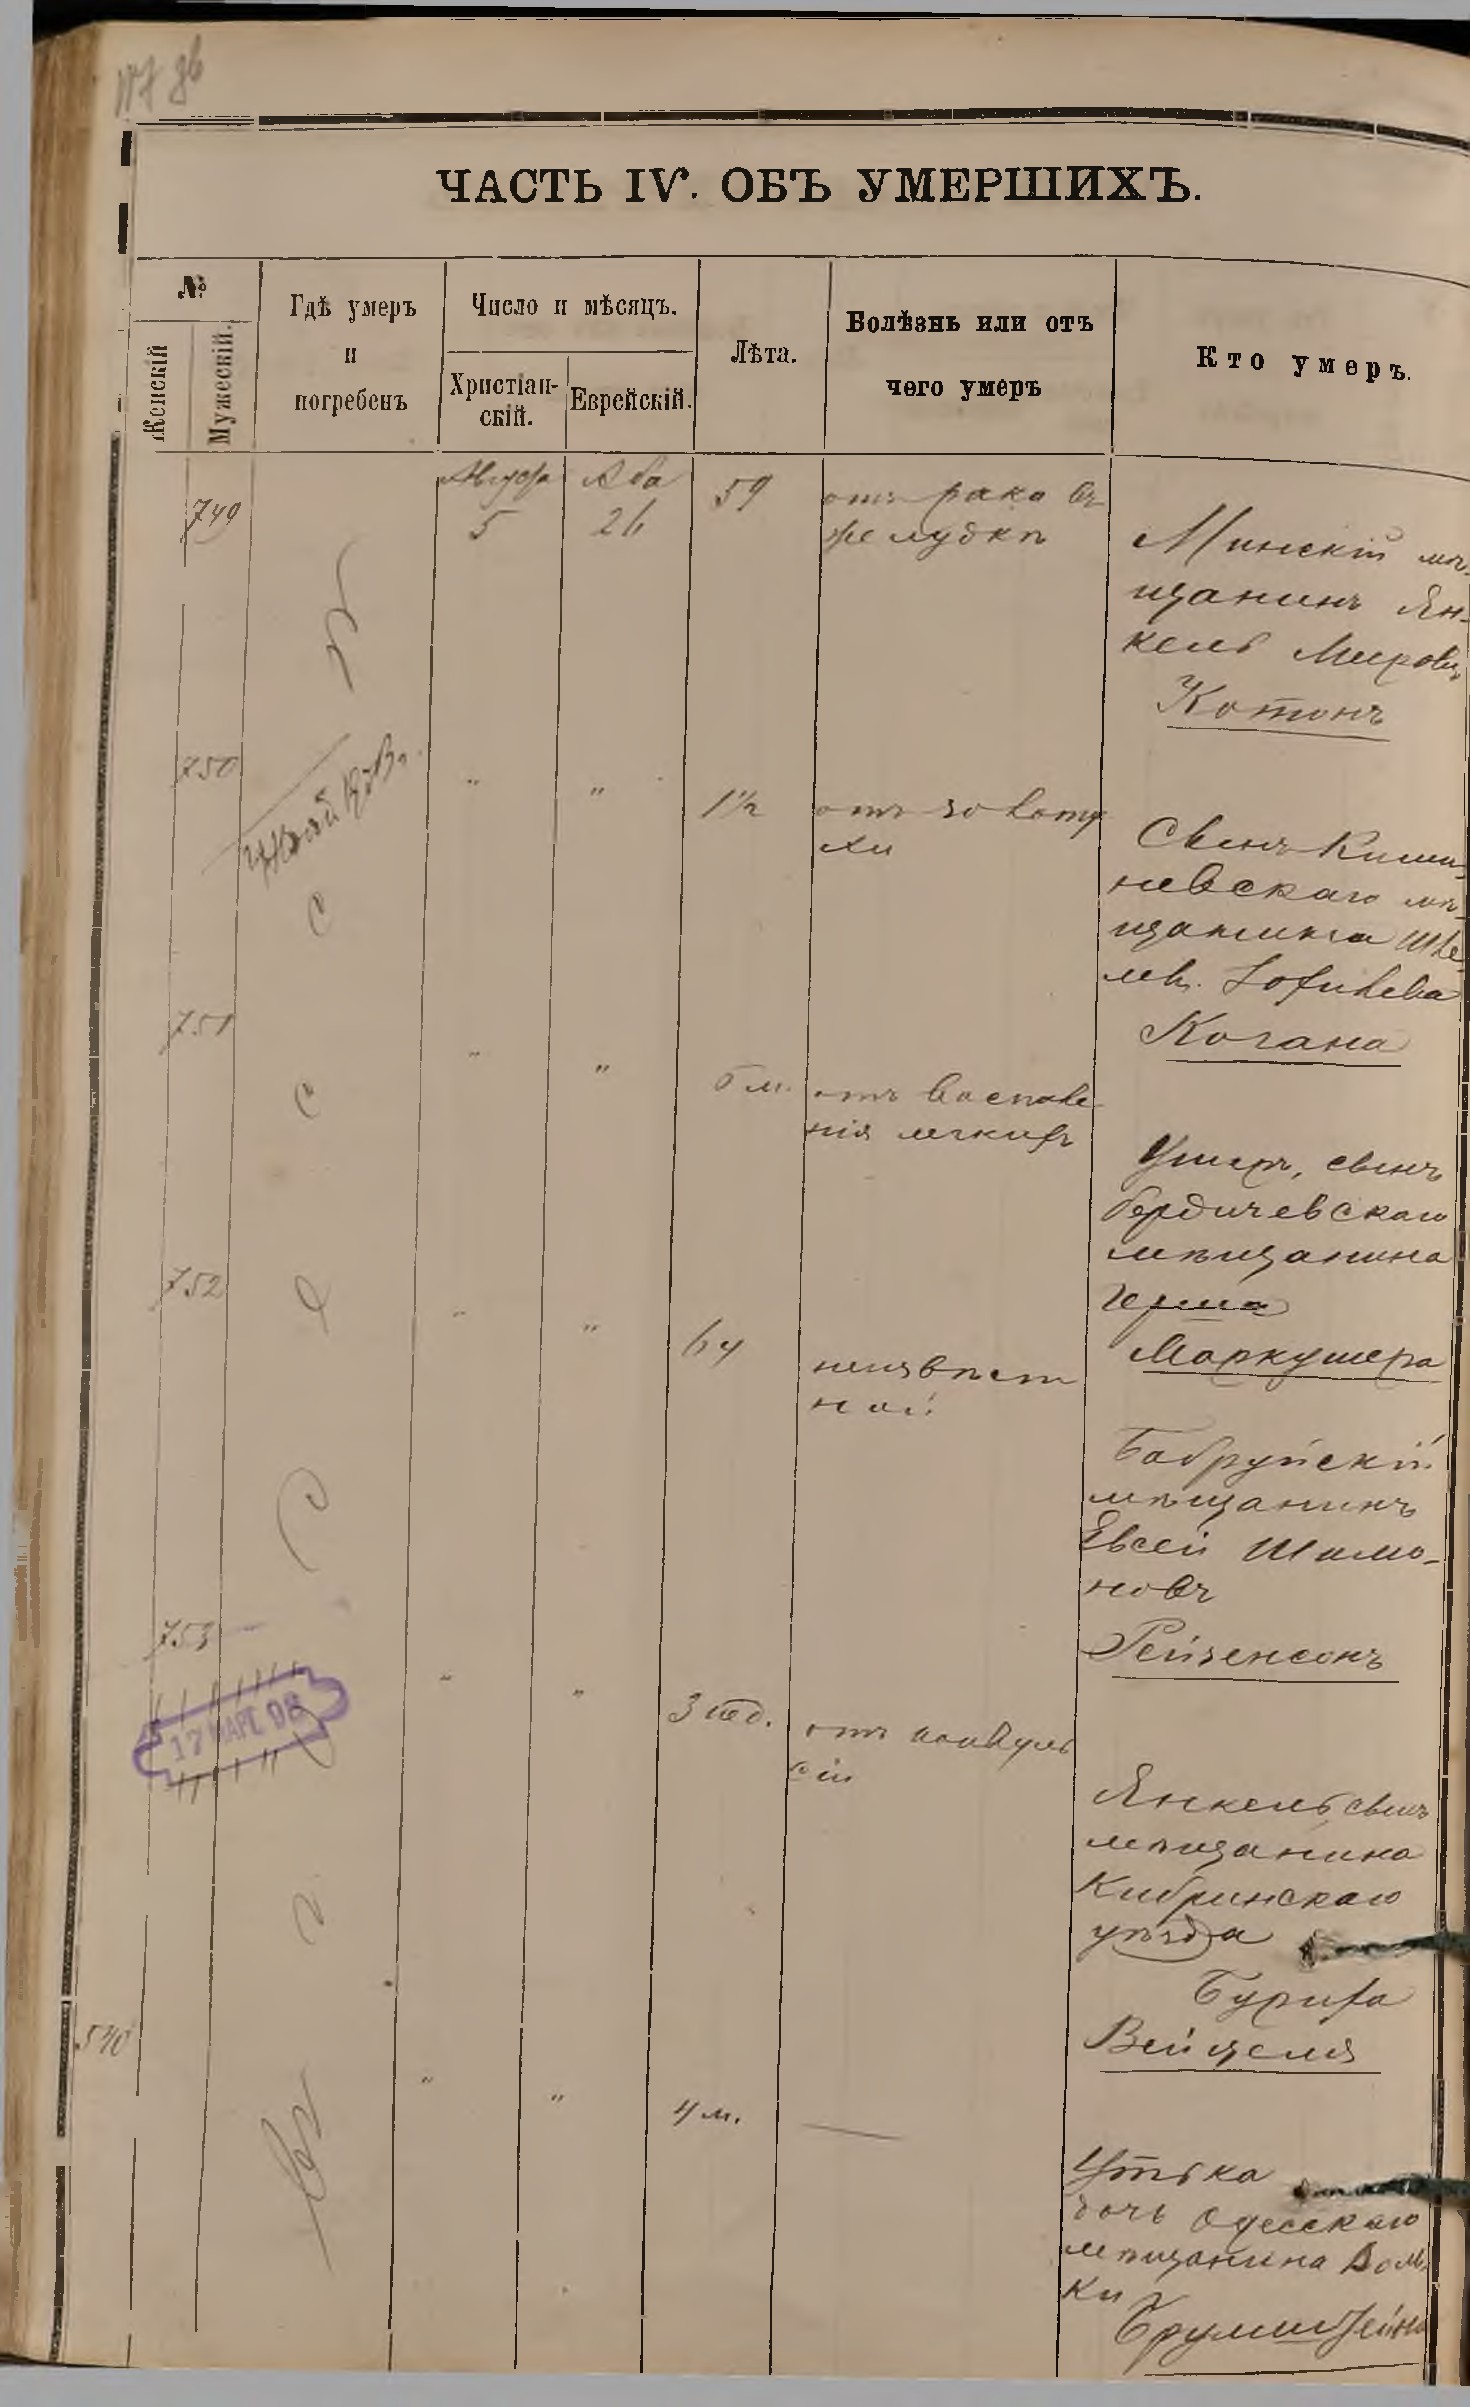 ЧАСТЬ IV. ОБЪ УМЕРШИХЪ.
№
Женскій
Мужескій.
Гдѣ умеръ
и
погребенъ
Число и мѣсяцъ.
Христіан-
скій.
Еврейскій.
Лѣта.
Болѣзнь или отъ
чего умеръ
Кто умеръ.
749
Августа
5
Аба
26
59
отъ рака въ
желудкѣ
Минскій мѣ-
щанинъ Ян-
кель Мировъ
Котонъ
750
"
"
1½
отъ золоту
хи
Сынъ Киши-
невскаго мѣ-
щанина
Когана
751
"
"
5 м.
отъ воспале
нія легкихъ
Ушеръ, сынъ
бердичевскаго
мѣщанина
Герша
Маркушера
752
"
"
64
неизвѣст
ной
Бобруйскій
мѣщанинъ
Евсей Шимо-
новъ
Рейзенсонъ
753
17 МАРТ 98
"
"
3 нед.
отъ конвуль
сій
Янкель, сынъ
мѣщанина
Кибринскаго
уѣзда
Буриха
Вейцеля
540
"
"
4 м.
—
Утька
дочь Одесскаго
мѣщанина
ки
Брумштейна